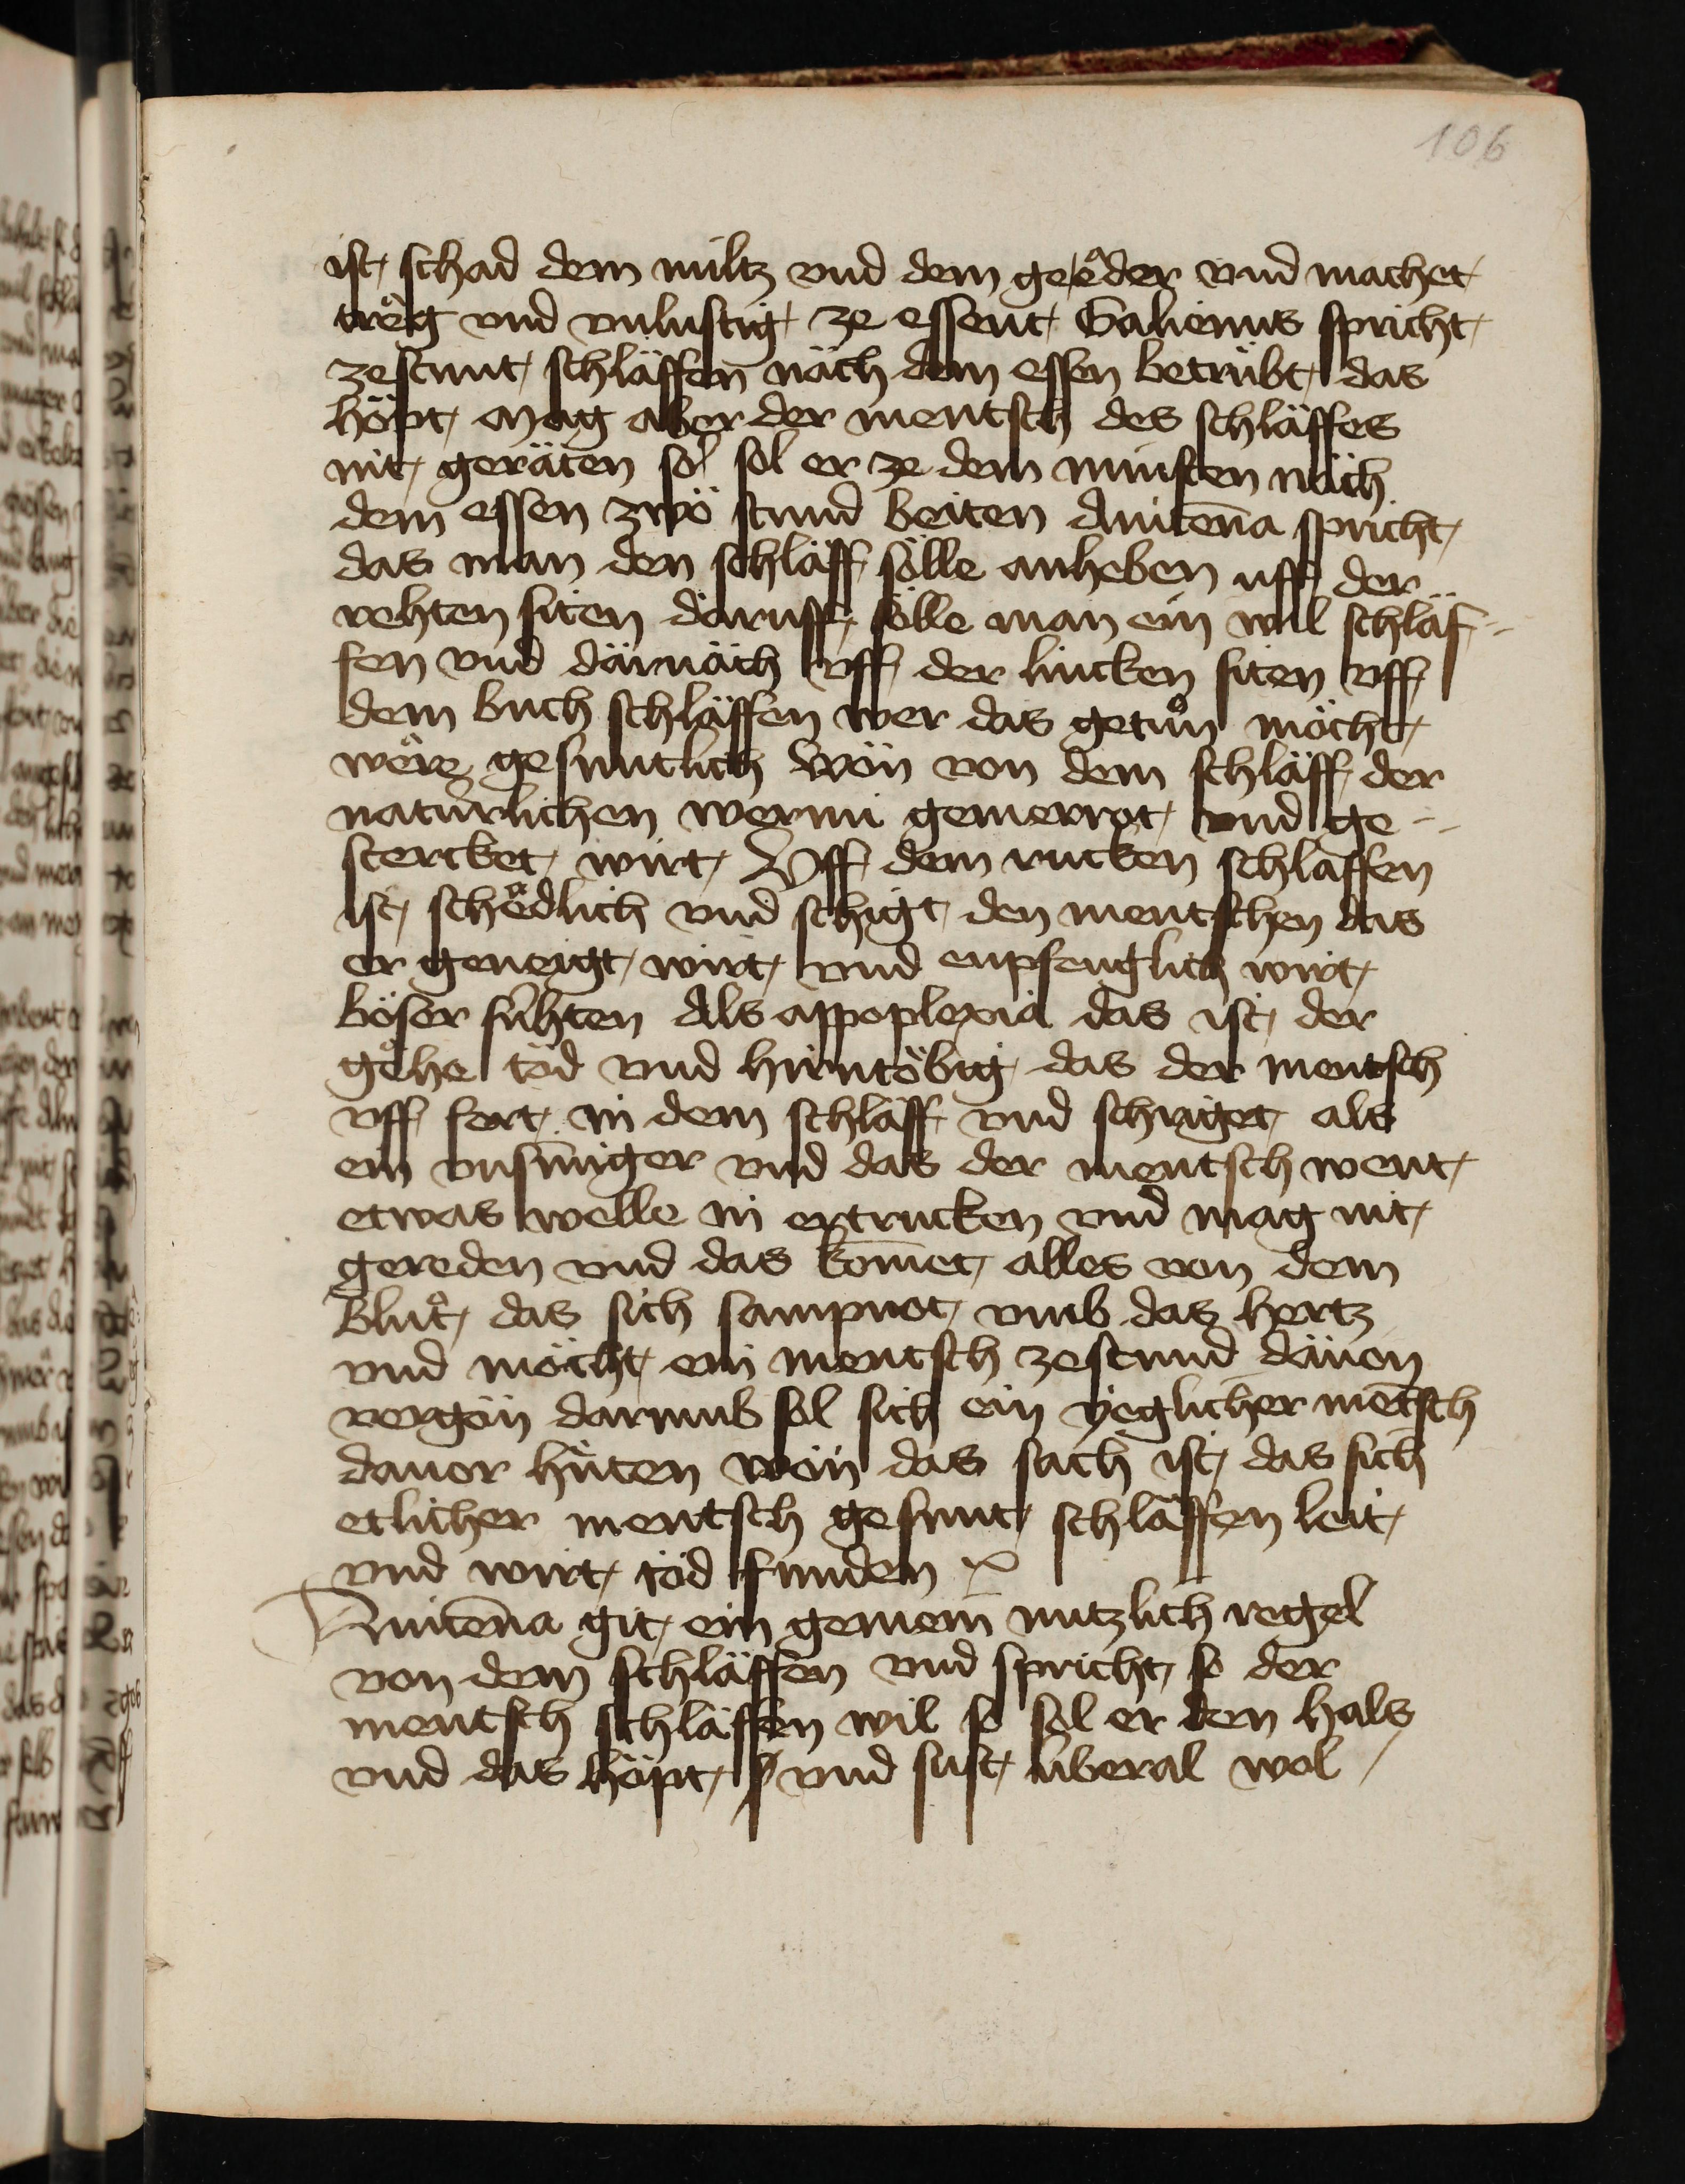 106
ist schad dem miltz vnd dem geeͣder vnd machet
treͣg vnd vnlustig ze essent Galienus spricht
zestunt schläffen näch dem essen betrübt das
höpt mag aber der mentsch des schläffes
nit geräten so sol er ze dem minsten näch
dem essen zwö stund beiten Auicēna spricht
das man den schläff sölle anheben uff der
rehten siten däruff sölle man ein wil schläf-
fen vnd därnäch vff der lincken siten vff
dem buch schläffen wer das getuͦn möcht
weͣre gesuntlich Wön von dem schläff der
natürlichen wermi gemerrot vnd ge-
stercket wirt Vff dem rucken schläffen
ist scheͣdlich vnd schigt den mentschen das
er geneigt wirt vnd enpfenglich wirt
böser sühten Als appoplexia das ist der
geͣhe töd vnd hirntöbig das der mentsch
vff fert in dem schläff vnd schriget als
ein vnsinniger vnd das der mentsch went
etwas welle in ertrucken vnd mag nit
gereden vnd das komet alles von dem
Bluͦt das sich sampnot vmb das hertz
vnd möcht ein mentsch zestund däuon
vergön darumb sol sich ein yeglicher mētsch
dauor hüten wön das sach ist das sich
etlicher mentsch gesunt schläffen leit
vnd wirt töd funden
Auicēna git ein gemein nutzlich regel
von dem schläffen vnd spricht so der
mentsch schläffen wil so sol er den hals
vnd das höpt vnd sust überal wol